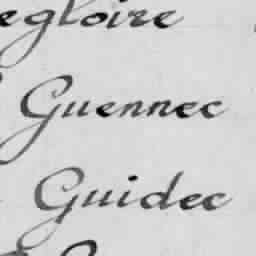 egloire
Guennec
Guidec